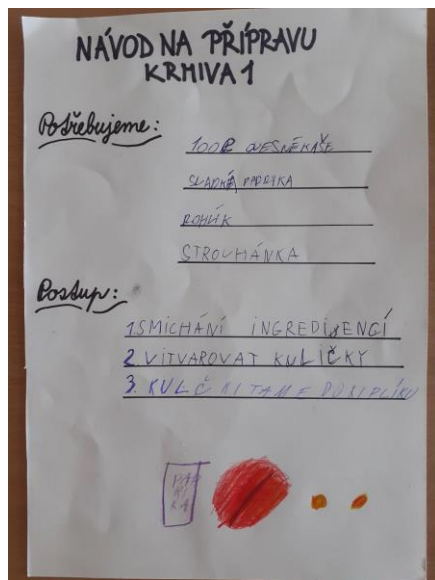 NÁVOD NA PŘÍPRAVU
KRMIVA 1
Potřebujeme:
100g OVESNÉ KAŠE
SLADKÁ PAPRYKA
ROHLÍK
STROUHÁNKA
Postup:
1. SMICHÁNÍ INGREDIJENCÍ
2. VITVAROVAT KULIČKY
3.
PAP
RI
KA